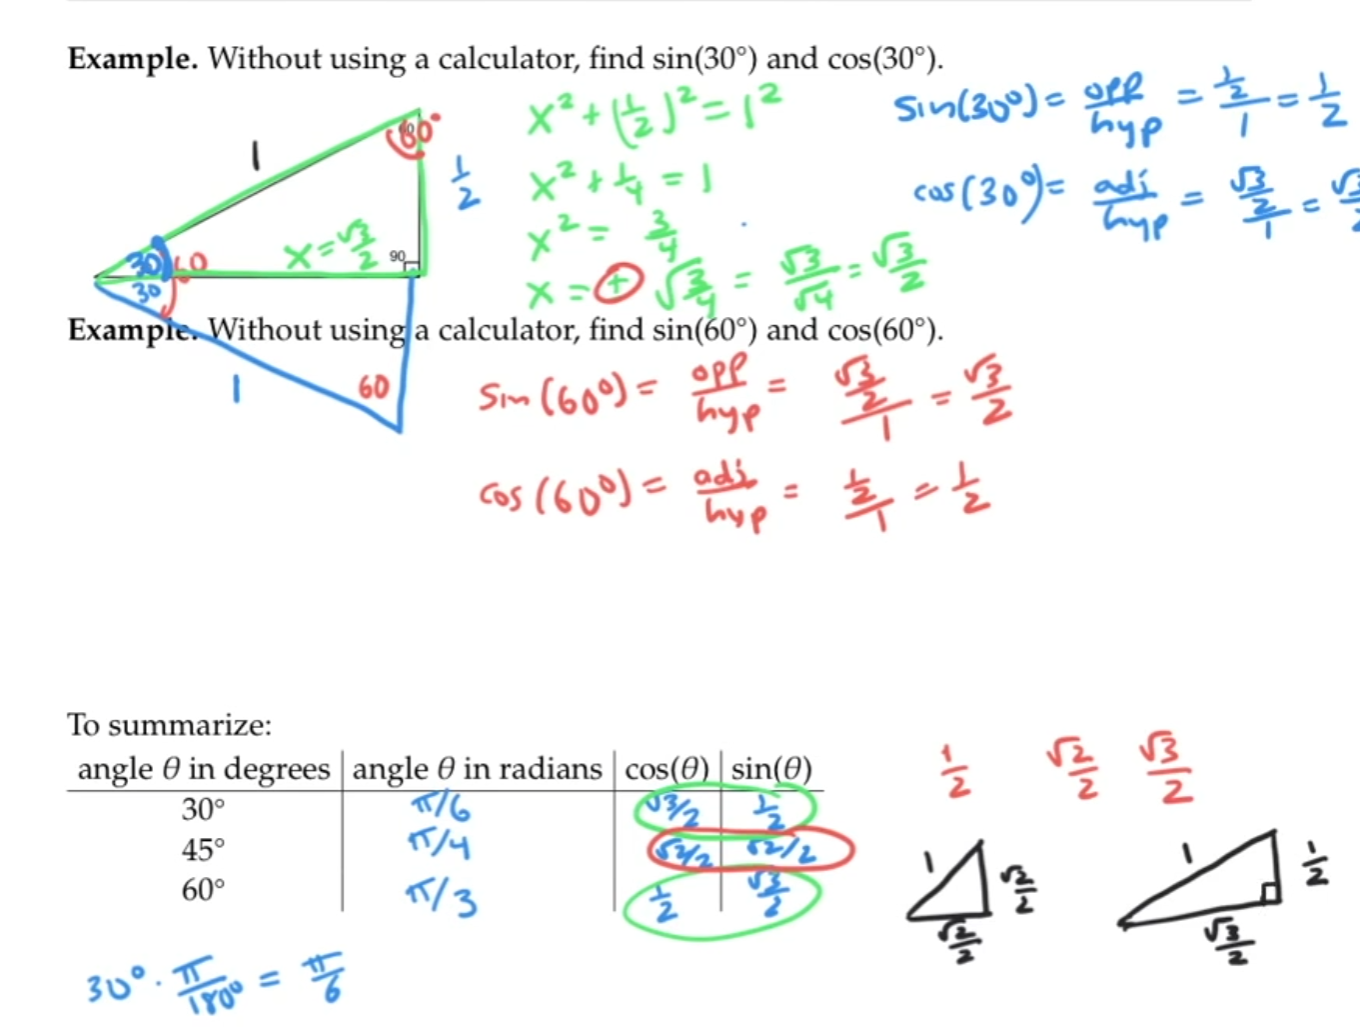 Example. Without using a calculator, find sin(30°) and cos(30°).
1
60°
1/2
x = √3/2
90
30
60
30
x² + (1/2)² = 1²
x² + 1/4 = 1
x² = 3/4
x = + √(3/4) = √3/√4 = √3/2
sin(30°) = opp/hyp = (1/2)/1 = 1/2
cos(30°) = adj/hyp = (√3/2)/1 = √3/2
Example. Without using a calculator, find sin(60°) and cos(60°).
1
60
sin(60°) = opp/hyp = (√3/2)/1 = √3/2
cos(60°) = adj/hyp = (1/2)/1 = 1/2
To summarize:
angle θ in degrees angle θ in radians cos(θ) sin(θ)
30° π/6 √3/2 1/2
45° π/4 √2/2 √2/2
60° π/3 1/2 √3/2
1/2 √2/2 √3/2
1 √2/2 √2/2
1 1/2 √3/2
30° · π/180° = π/6